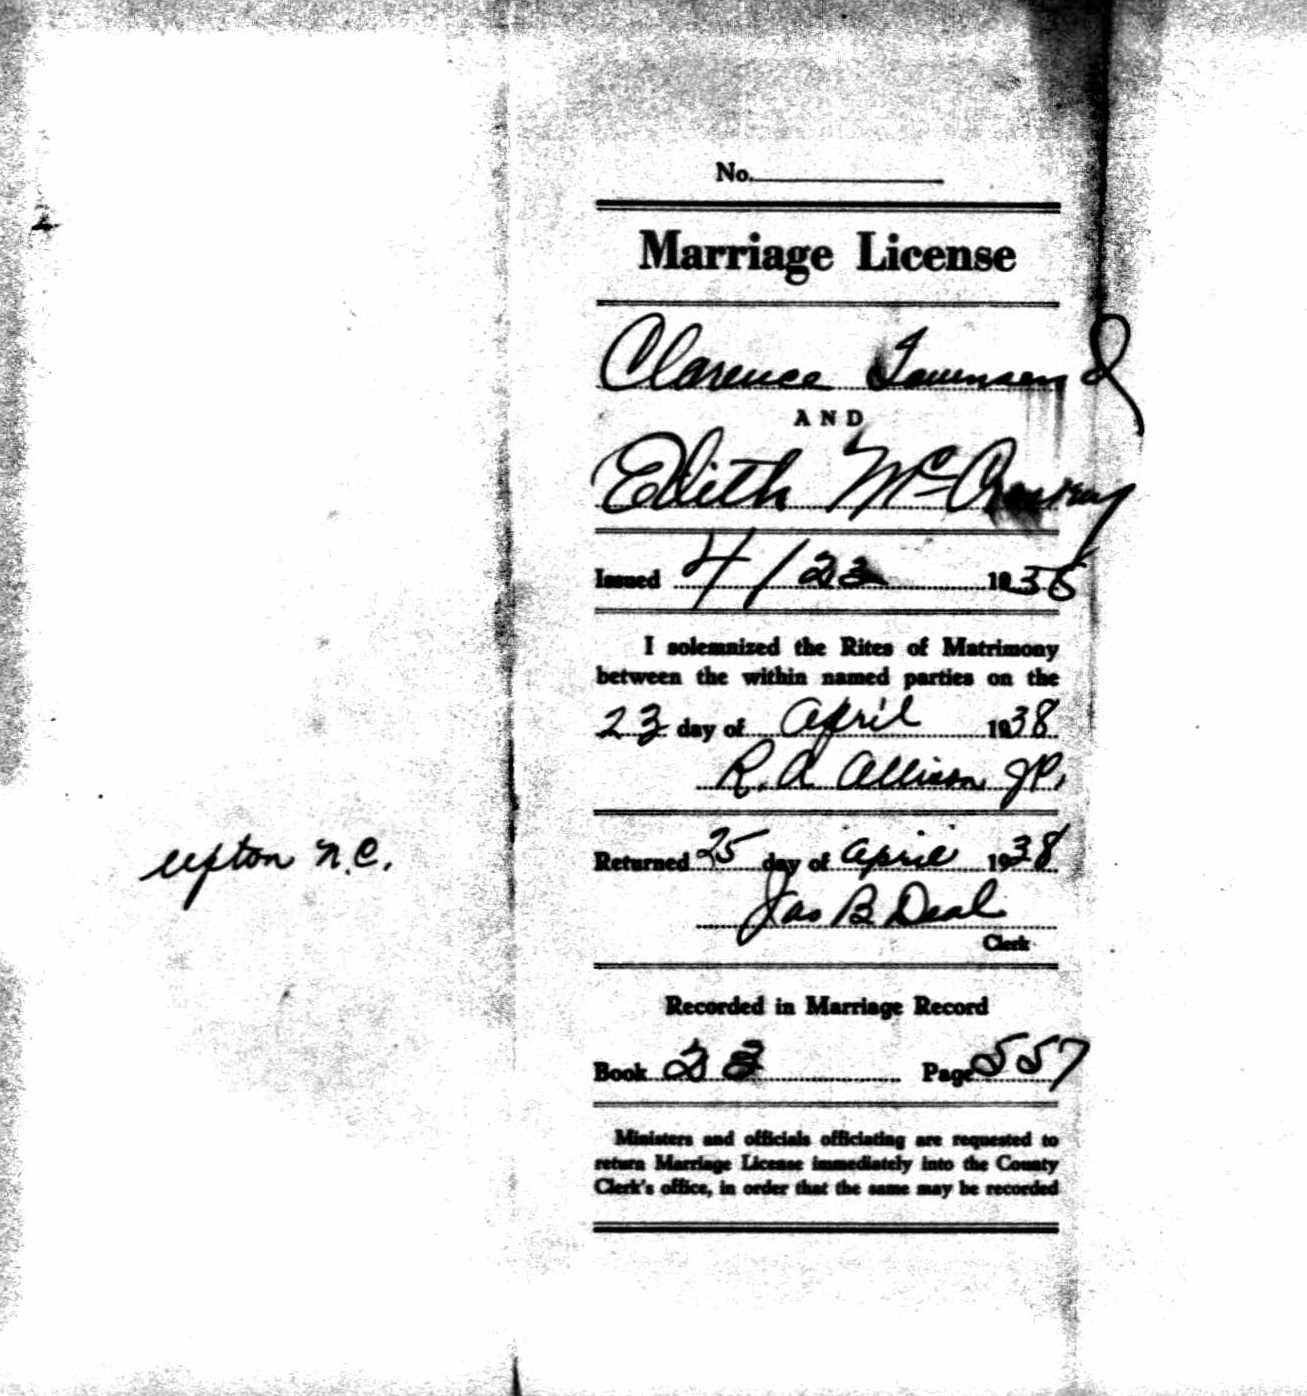 No.
Marriage License
Clarence Townsend
AND
Edith
Issued 4/23 1938
I solemnized the Rites of Matrimony
between the within named parties on the
23 day of April 1938
R. A. Allison JP.
upton N.C.
Returned 25 day of April 1938
Jas B Deal
Clerk
Recorded in Marriage Record
Book 23 Page 557
Ministers and officials officiating are requested to
return Marriage License immediately into the County
Clerk's office, in order that the same may be recorded